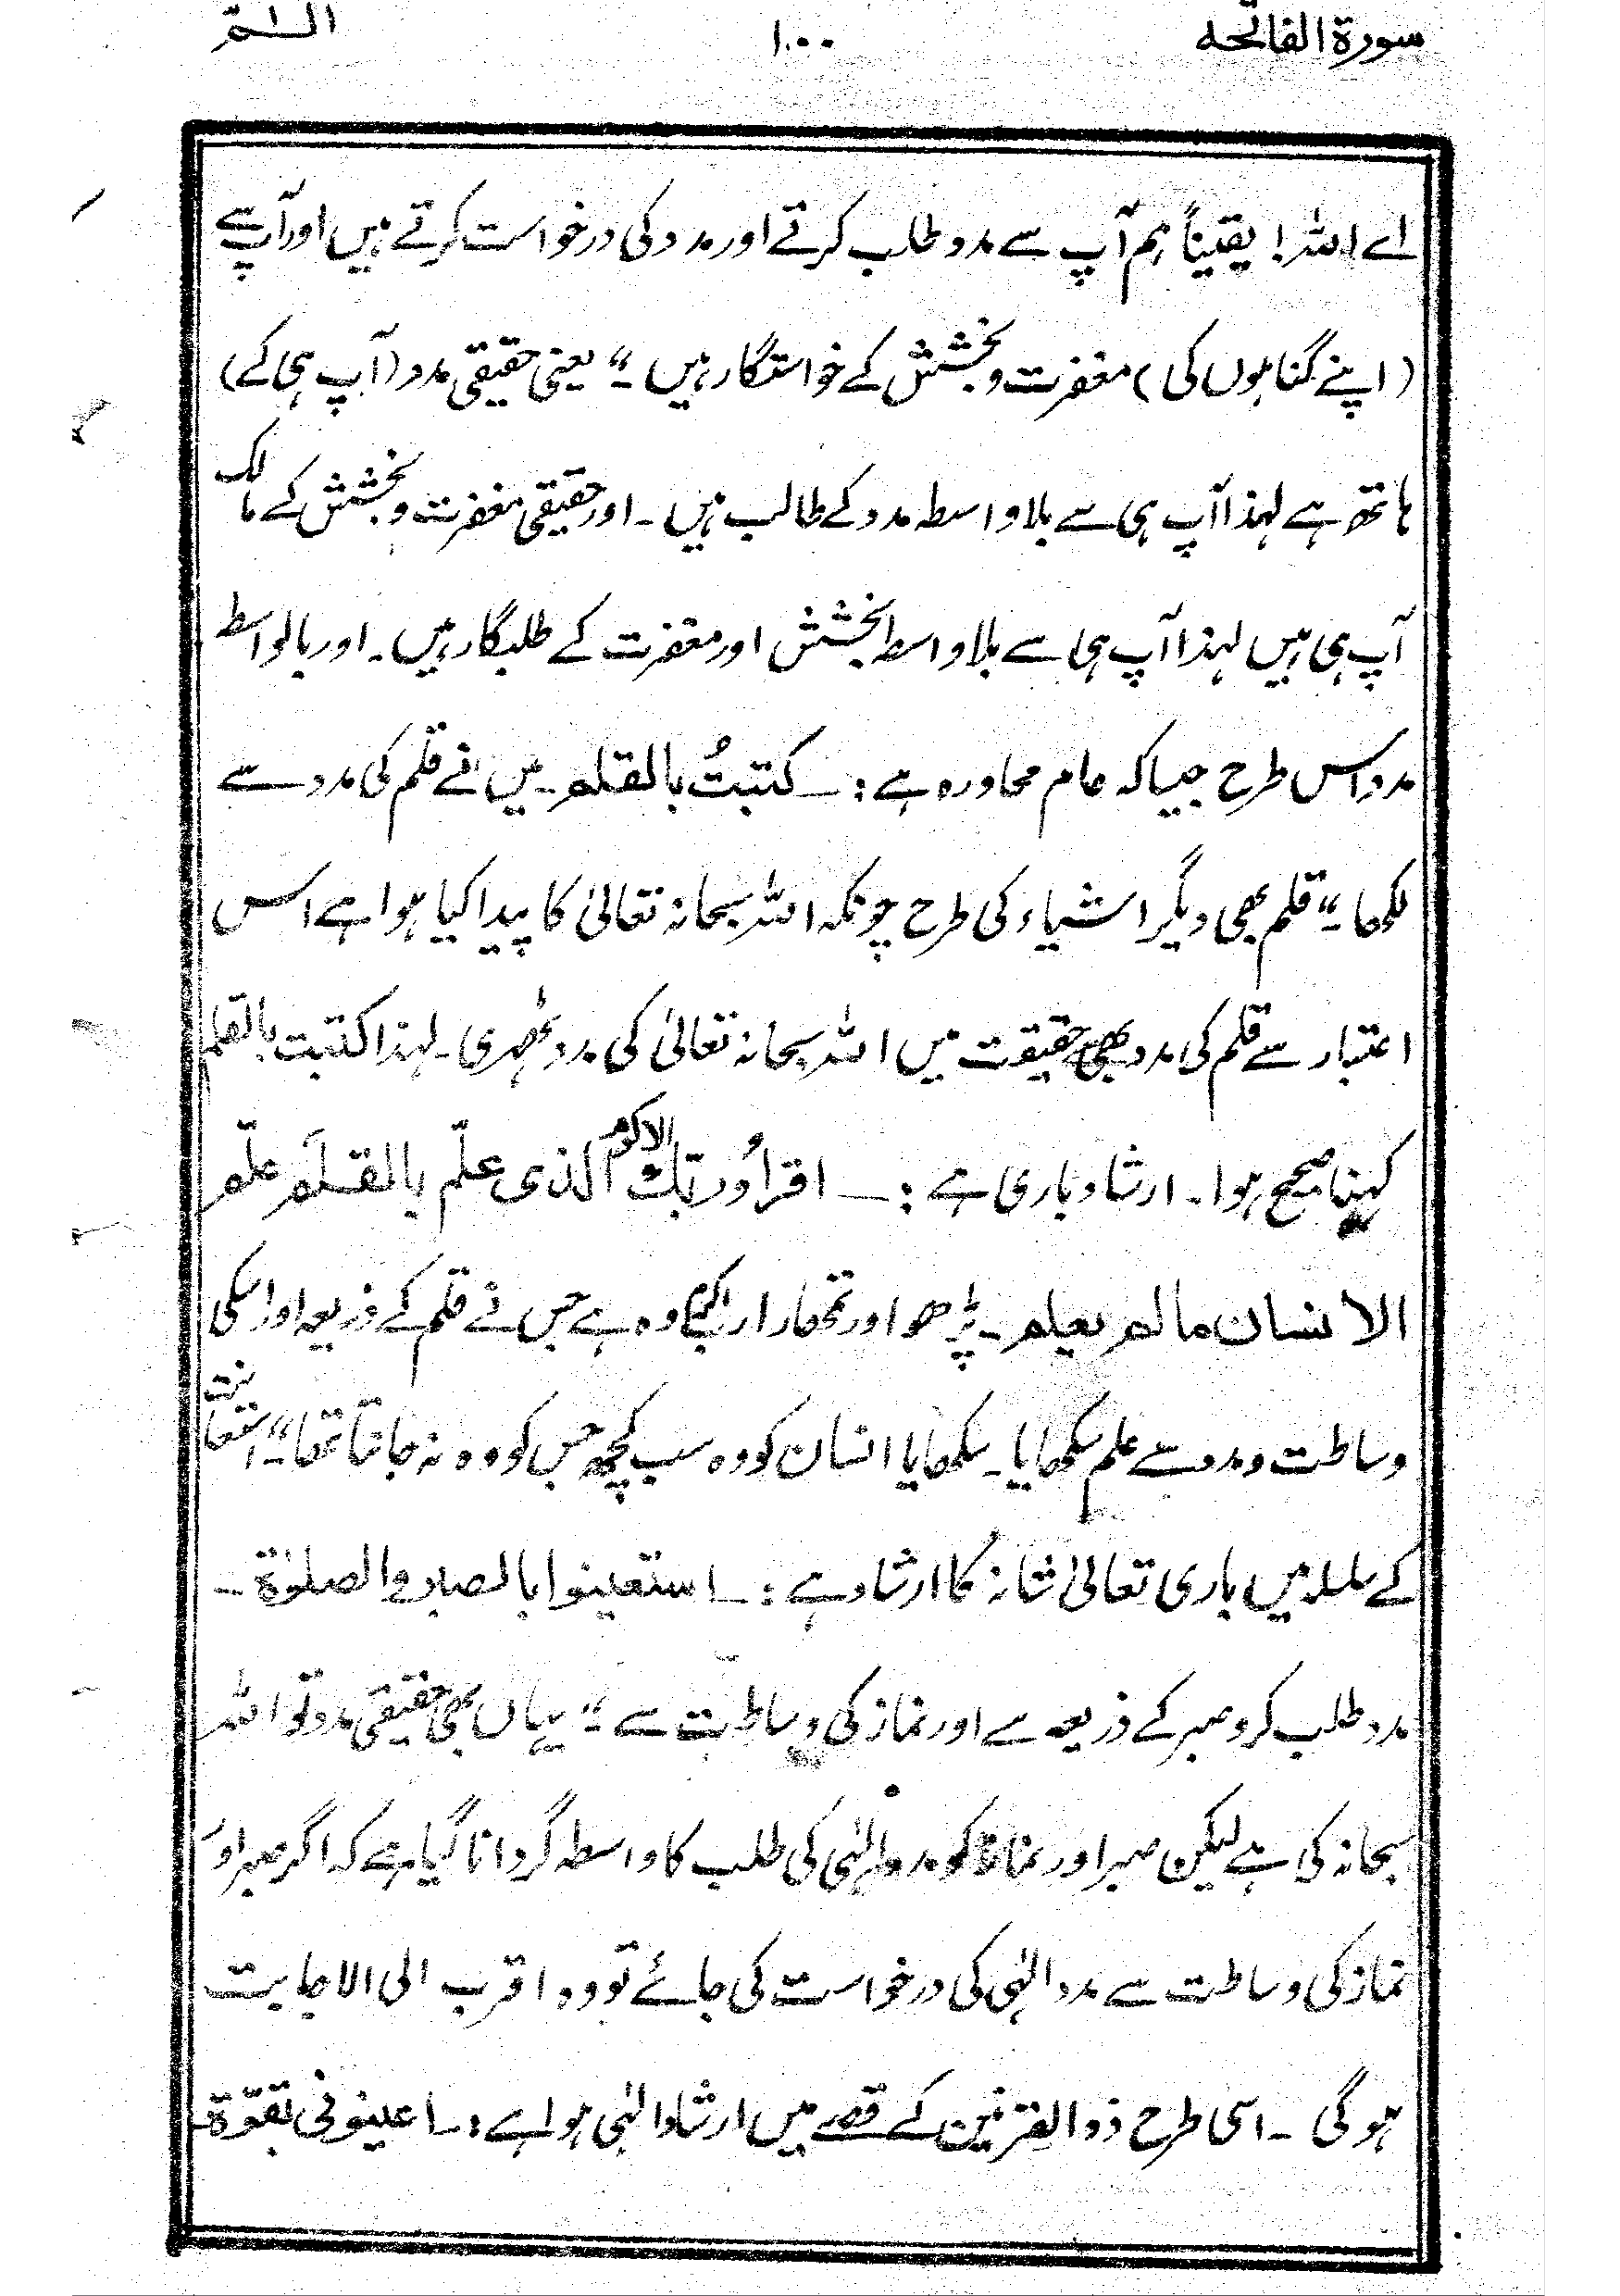 سورة الفاتحہ ۱۰۰ الٓـمّٓ
اے اللہ! یقیناً ہم آپ سے مدد طلب کرتے اور مدد کی درخواست کرتے ہیں اور آپ سے
(اپنے گناہوں کی) مغفرت و بخشش کے خواستگار ہیں ۔“ یعنی حقیقی مدد (آپ ہی کے)
ہاتھ ہے لہذا آپ ہی سے بلاواسطہ مدد کے طالب ہیں ۔ اور حقیقی مغفرت و بخشش کے مالک
آپ ہی ہیں لہذا آپ ہی سے بلاواسطہ بخشش اور مغفرت کے طلبگار ہیں ۔ اور بالواسطہ
مدد اس طرح جیسا کہ عام محاورہ ہے :ــ کتبتُ بالقلم ۔ میں نے قلم کی مدد سے
لکھا ۔“ قلم بھی دیگر اشیاء کی طرح چونکہ اللہ سبحانہ تعالیٰ کا پیدا کیا ہوا ہے اس
اعتبار سے قلم کی مدد بھی حقیقت میں اللہ سبحانہ تعالیٰ کی مدد ٹھہری ۔ لہذا کتبت بالقلم
کہنا صحیح ہوا ۔ ارشاد باری ہے :ــ اقرأ وربّک الاکرم الذی علّم بالقلم علّم
الانسان مالم یعلم ۔ پڑھو اور تمھارا رب کریم وہ ہے جس نے قلم کے ذریعہ اور اسکی
وساطت و مدد سے علم سکھایا ۔ سکھایا انسان کو وہ سب کچھ جس کو وہ نہ جانتا تھا ۔“ استعانت
کے سلسلہ میں باری تعالیٰ شانہ کا ارشاد ہے :ــ استعینوا بالصبر والصلوٰة ۔
مدد طلب کرو صبر کے ذریعہ سے اور نماز کی وساطت سے ۔“ یہاں بھی حقیقی مدد تو اللہ
سبحانہ کی ہے لیکن صبر اور نماز کو مدد الٰہی کی طلب کا واسطہ گردانا گیا ہے کہ اگر صبر اور
نماز کی وساطت سے مدد الٰہی کی درخواست کی جائے تو وہ اقرب الی الاجابت
ہوگی ۔ اسی طرح ذوالقرنین کے قصے میں ارشاد الٰہی ہوا ہے :ــ اعینونی بقوّة